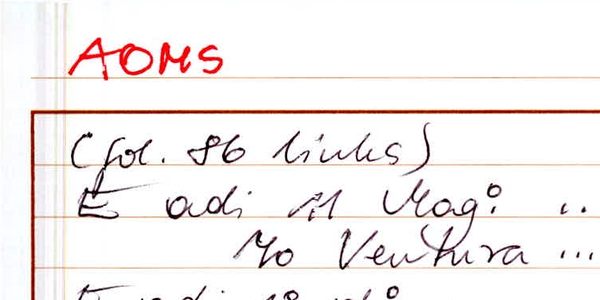 AOMS
(fol. 86 links)
E adi 11 Mag° ..
Mo Ventura ...
E adi